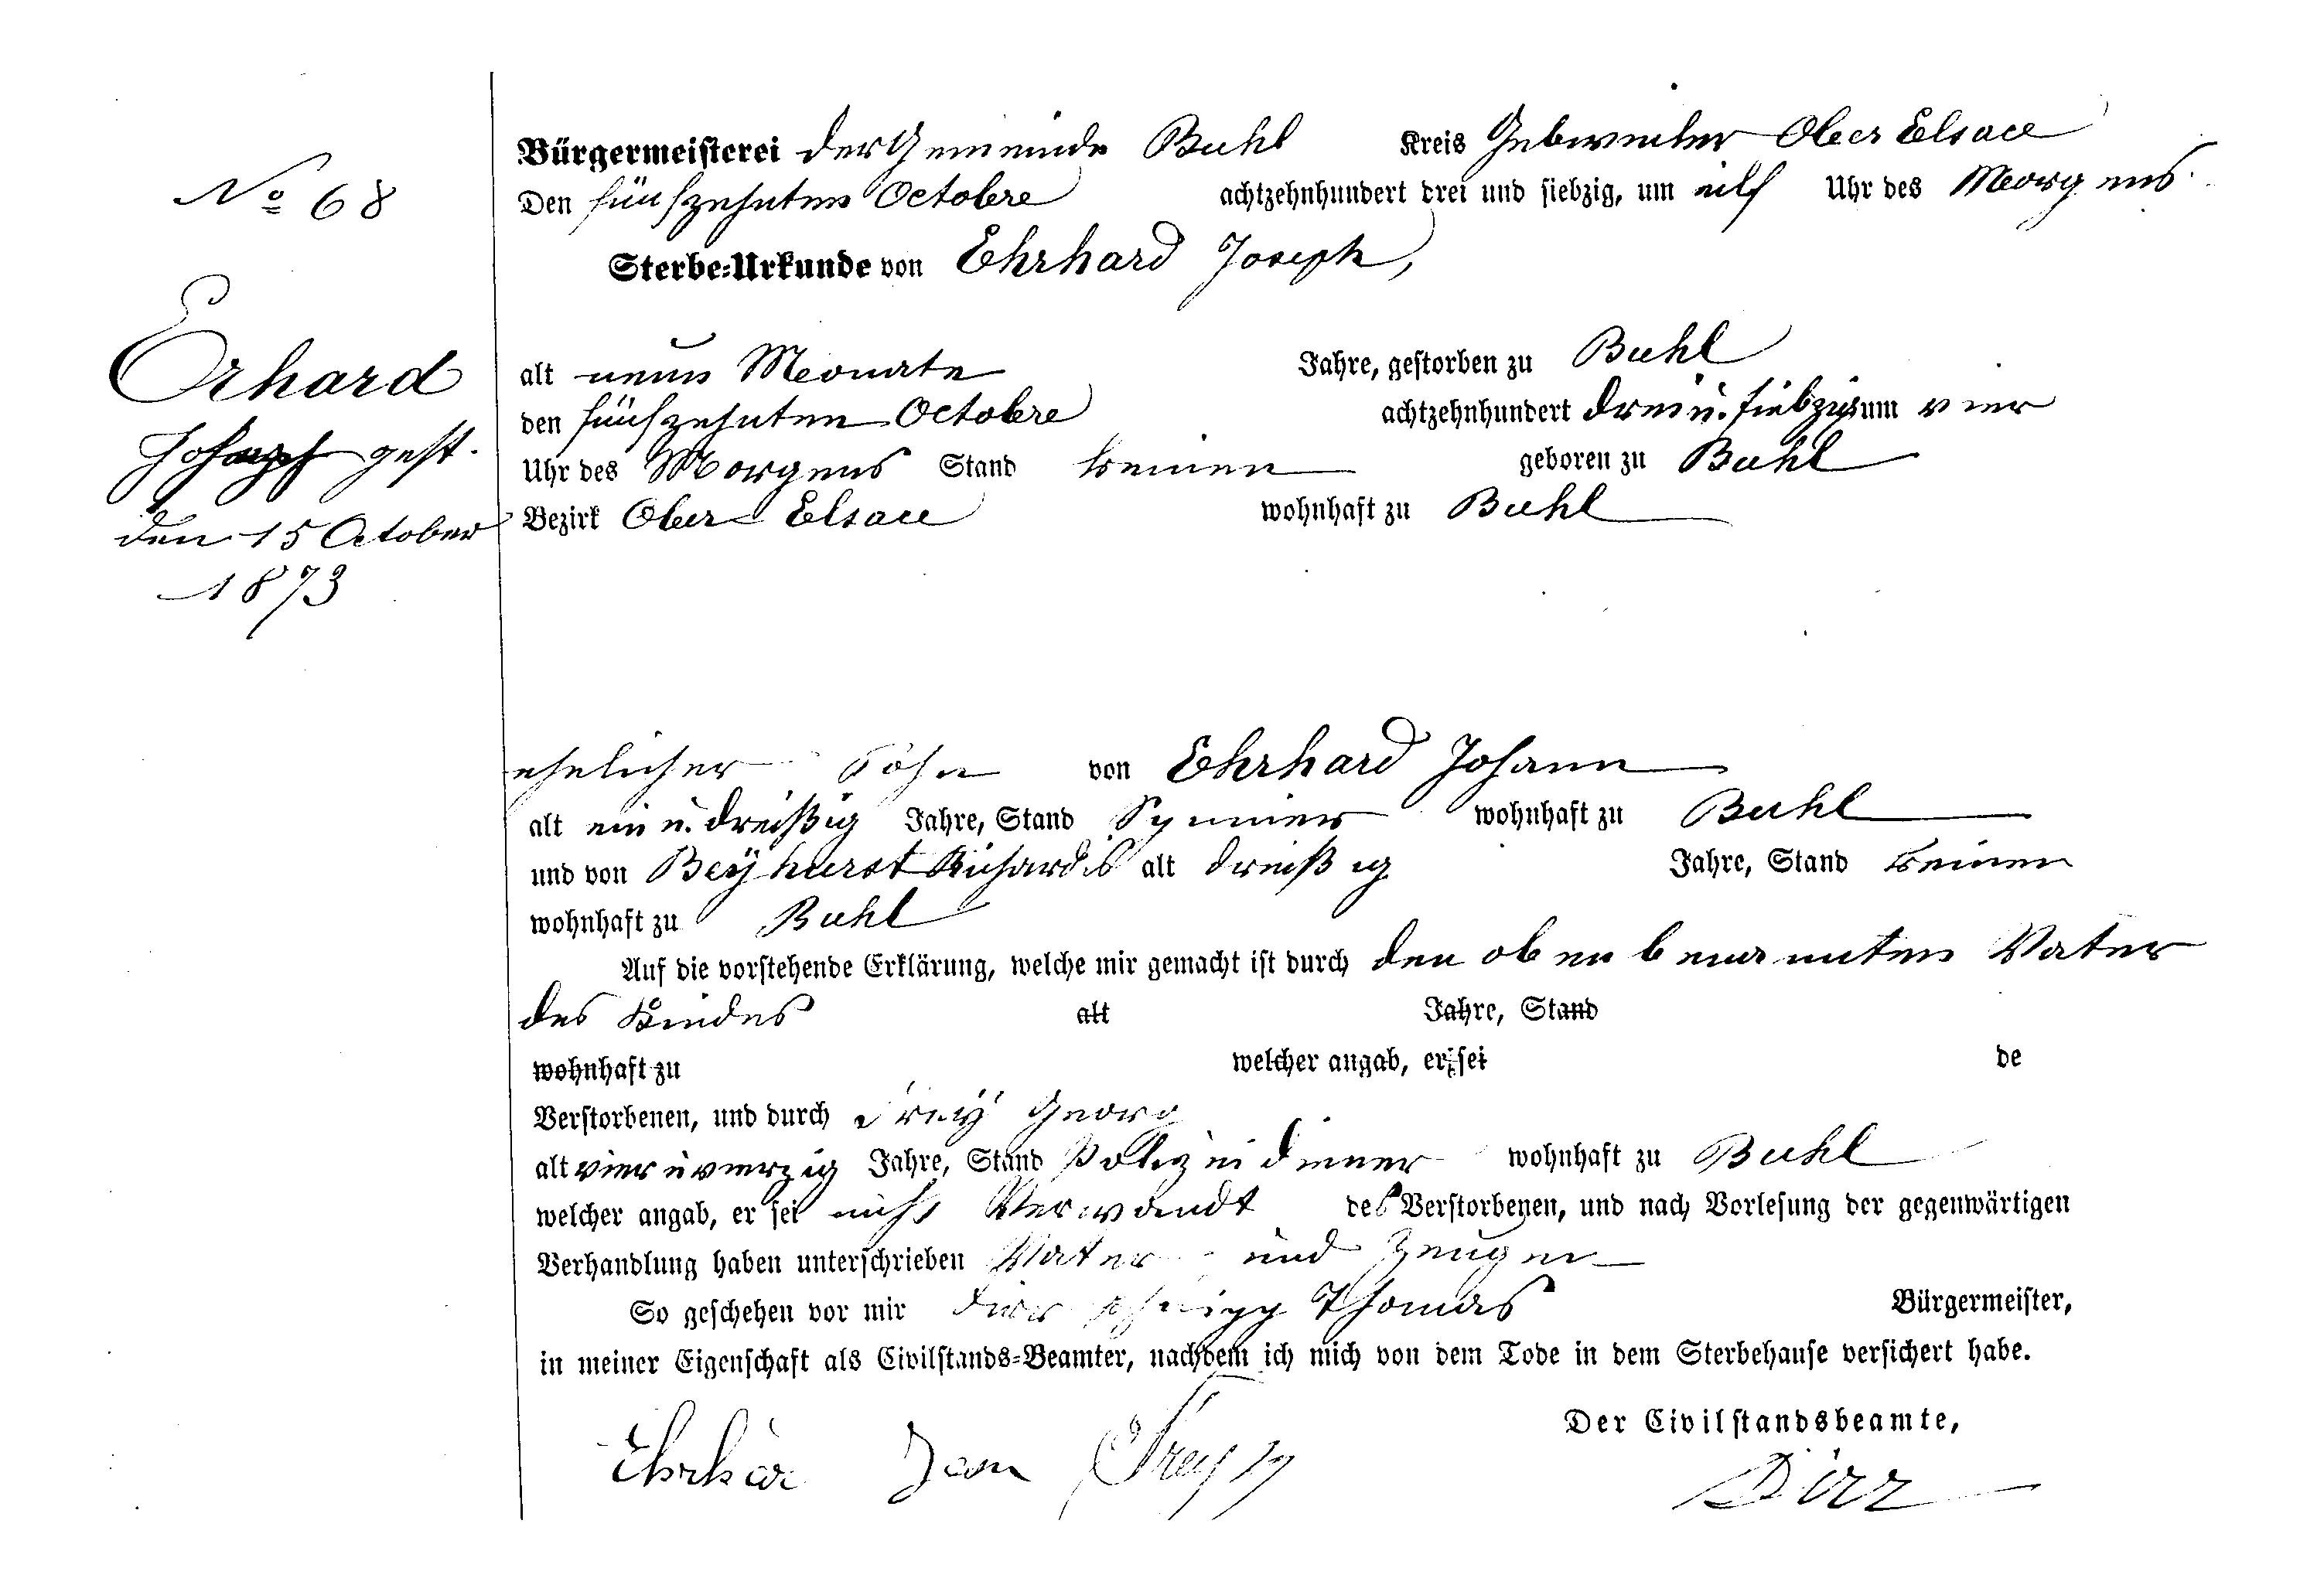 No 68
Erhard
Joseph gest.
den 15 October
1873
Bürgermeisterei der Gemeinde Buhl Kreis Gebweiler Ober Elsace
Den fünfzehnten Octobre achtzehnhundert drei und siebzig, um eilf Uhr des Morgens
Sterbe-Urkunde von Ehrhard Joseph,
alt neun Monate Jahre, gestorben zu Buhl
den fünfzehnten Octobre achtzehnhundert drei u. siebzig um vier
Uhr des Morgens Stand keinen geboren zu Buhl
Bezirk Ober Elsace wohnhaft zu Buhl
ehelicher Sohn von Ehrhard Johann
alt ein u. dreißig Jahre, Stand Spinner wohnhaft zu Buhl
und von Beyhurst Richardis alt dreißig Jahre, Stand keinen
wohnhaft zu Buhl
Auf die vorstehende Erklärung, welche mir gemacht ist durch den obenbenannten Vater
des Kindes alt Jahre, Stand
wohnhaft zu welcher angab, er sei de
Verstorbenen, und durch Frey Georg
alt vier u vierzig Jahre, Stand Polizeidiener wohnhaft zu Buhl
welcher angab, er sei nicht Verwandt des Verstorbenen, und nach Vorlesung der gegenwärtigen
Verhandlung haben unterschrieben Vater und Zeugen
So geschehen vor mir Dirr Thomas Bürgermeister,
in meiner Eigenschaft als Civilstands-Beamter, nachdem ich mich von dem Tode in dem Sterbehause versichert habe.
Der Civilstandsbeamte,
Ehrhar Jean Frey Dirr